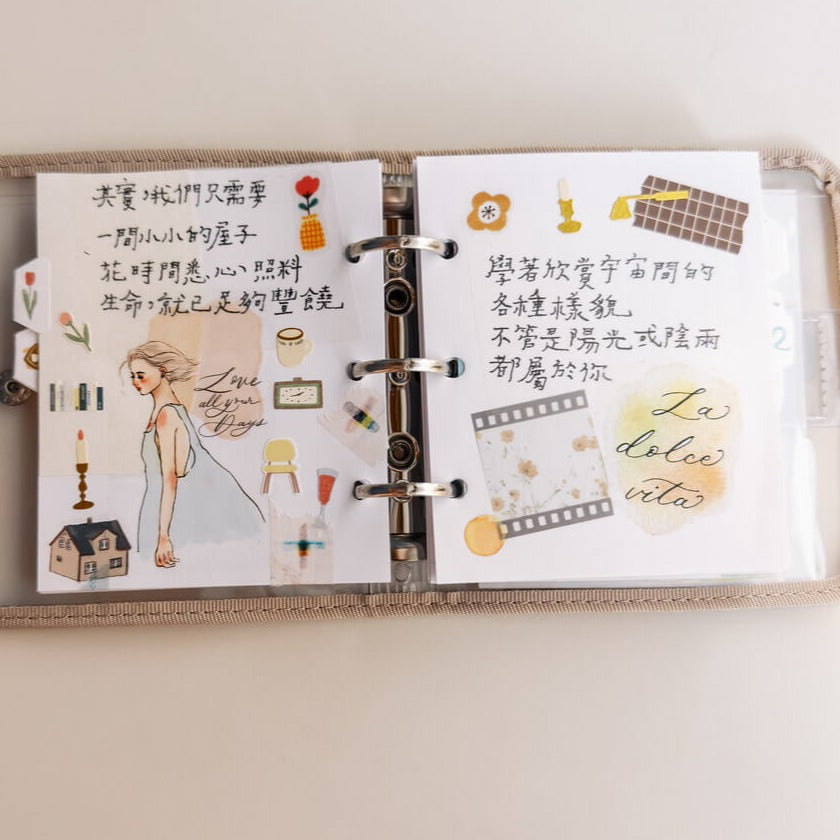 其實，我們只需要
一間小小的屋子
花時間悉心照料
生命，就已足夠豐饒
Love
all your
Days
學著欣賞宇宙間的
各種樣貌
不管是陽光或陰雨
都屬於你
La
dolce
vita
2